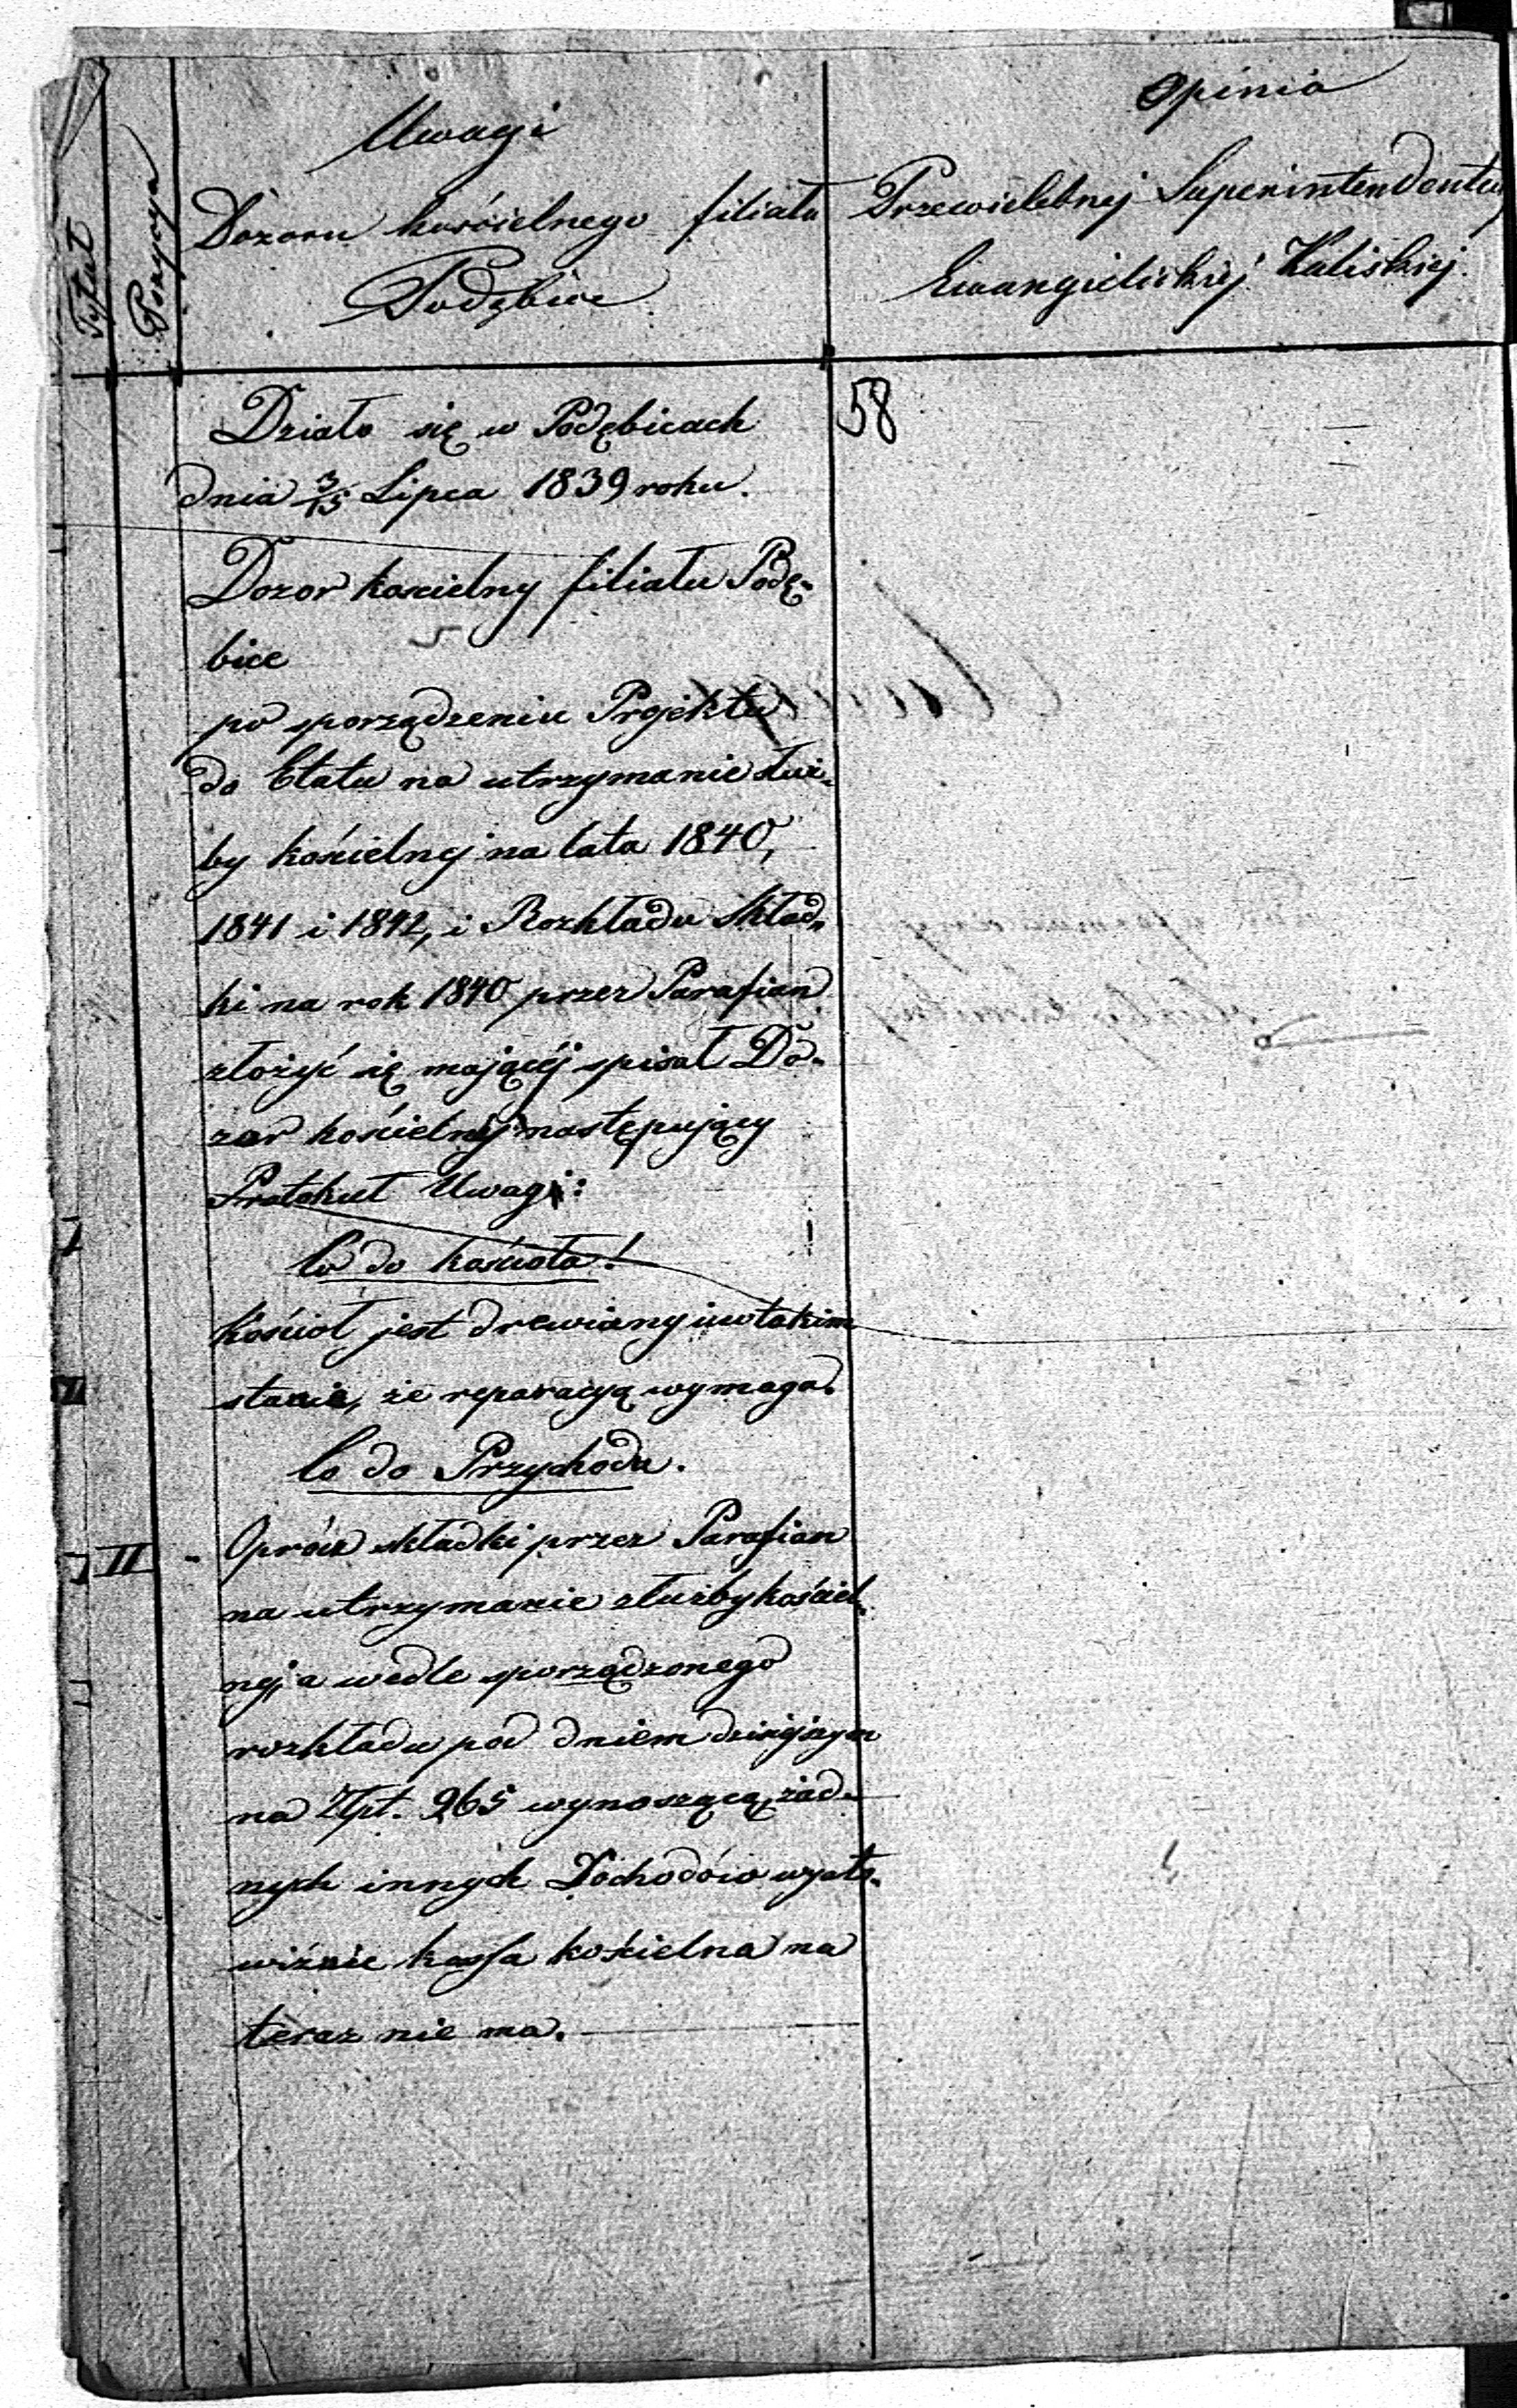 Tytuł
Pozycya
Uwagi
Dozoru kościelnego filiału
Podębice
Opinia
Przewielebnej Superintendentury
Ewangielickiej Kaliskiej.
58
Działo się w Podębicach
dnia 3/15 Lipca 1839 roku.
Dozor koscielny filiału Podę-
bice
po sporządzeniu Projektu
do Etatu na utrzymanie służ-
by kościelnej na lata 1840,
1841 i 1842, i Rozkładu skład-
ki na rok 1840 przez Parafian
złożyć się mającéj spisał Do-
zor kościelny następujący
Protokuł Uwagi:
Co do kościoła!
Kościoł jest drewiany i w takim
stanie, że reparacyą wymaga.
Co do Przychodu.
II - Oprócz składki przez Parafian
na utrzymanie służby kościel-
nej, a wedle sporządzonego
rozkładu pod dniem dzisiejszym
na Złpt. 265 wynoszącą, żad-
nych innych Dochodów wyłą-
wiźnie kassa kościelna na
teraz nie ma.